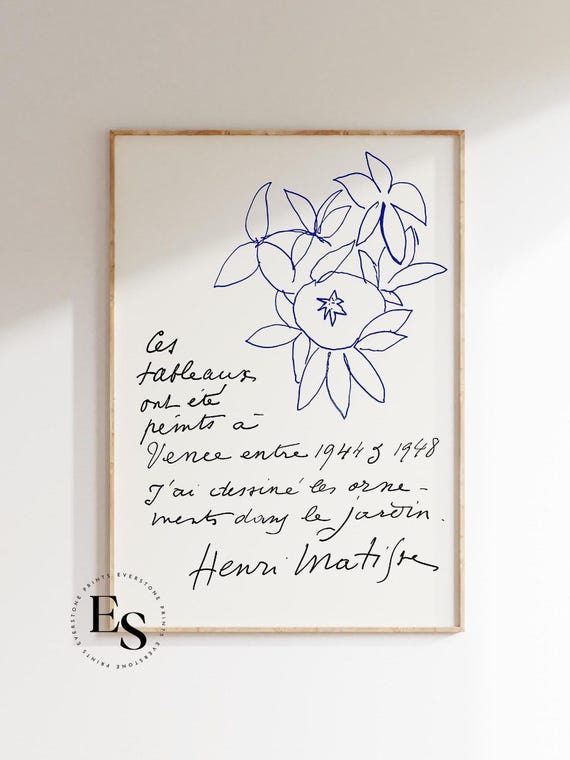 Ces
tableaux
ont été
peints à
Vence entre 1944 & 1948
J'ai dessiné les orne-
ments dans le jardin.
Henri Matisse
EVERSTONE PRINTS EVERSTONE PRINTS
ES